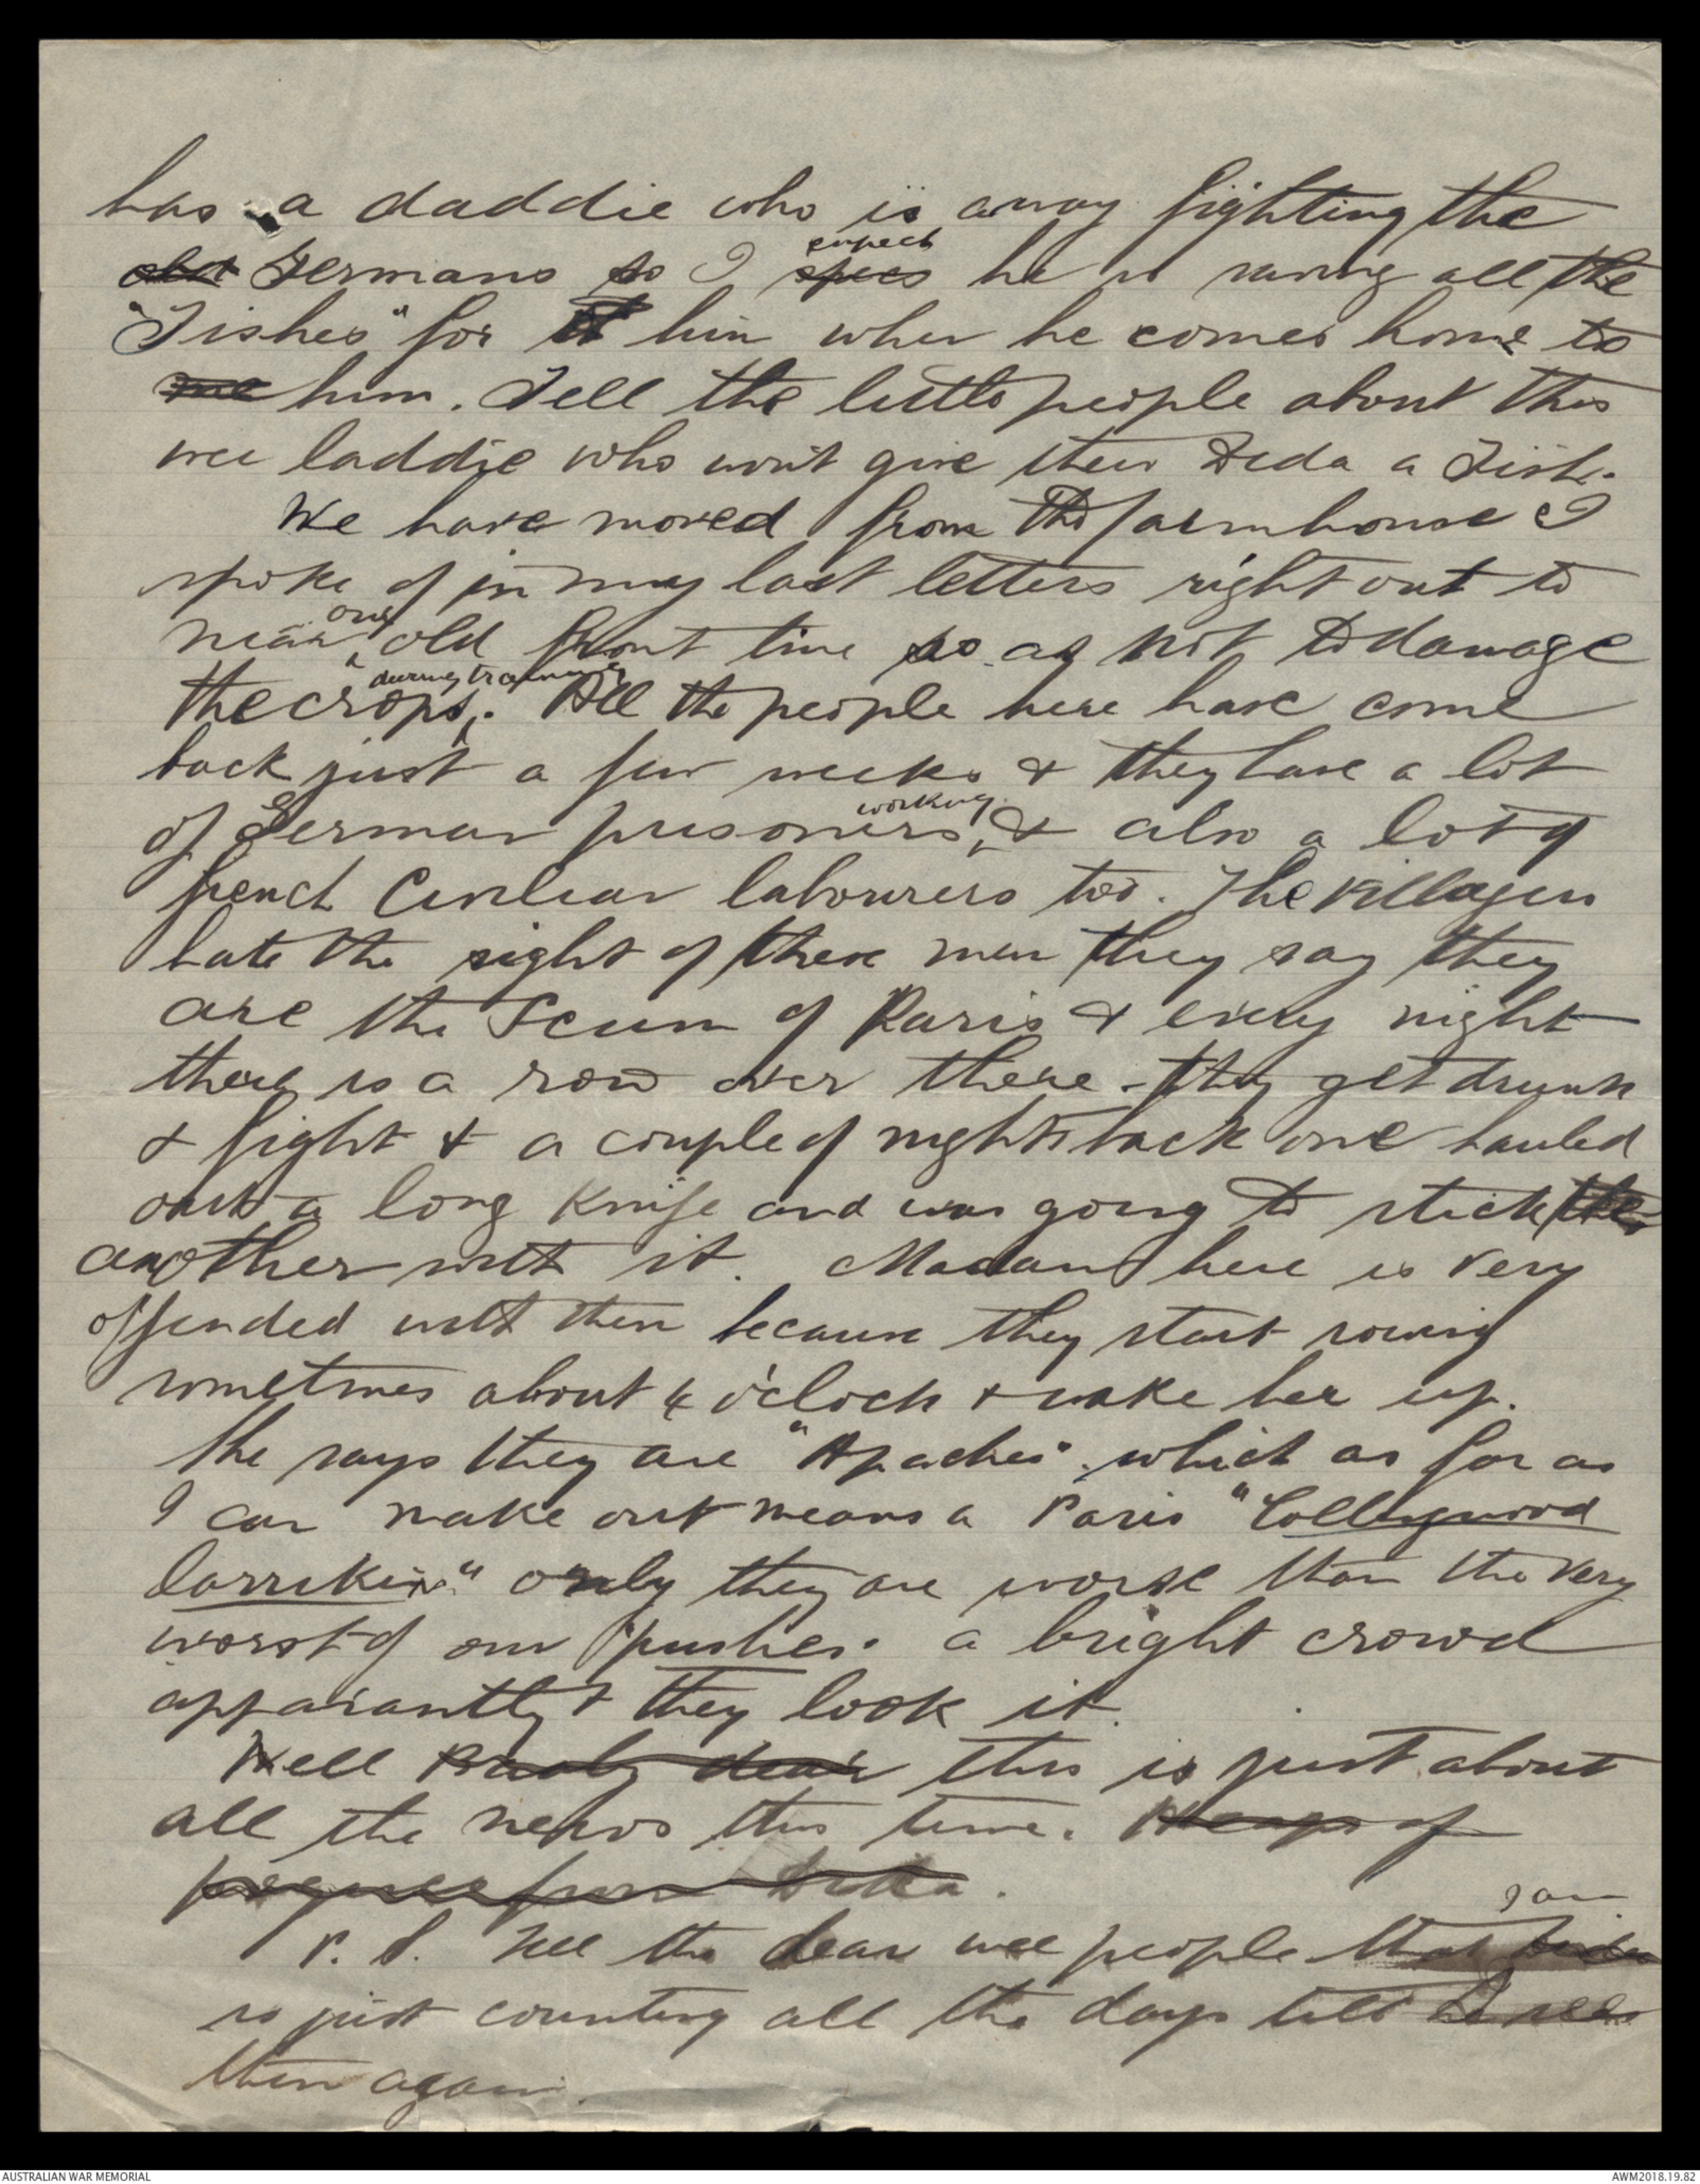 has a daddie who is away fighting the
old Germans so I spees expect he is saving all the
"Tishes" for him when he comes home to
me him. Tell the little people about this
wee laddie who won't give their Dida a Tish.
We have moved from the farmhouse I
spoke of in my last letters right out to
near our old front line so as not to damage
the crops during training. All the people here have come
back just a few weeks & they have a lot
of German prisoners working & also a lot of
french Civilian labourers too. The villagers
hate the sight of these men they say they
are the Scum of Paris & every night
there is a row over there - they get drunk
& fight & a couple of nights back one hauled
out a long knife and was going to stick the
another with it. Madam here is very
offended with them because they start rowing
sometimes about 4 o'clock & wake her up.
She says they are "Apaches" which as far as
I can make out means a Paris "Collingwood
larrikin" only they are worse than the very
worst of our "pushes" a bright crowd
apparantly & they look it.
Well Bauby dear this is just about
all the news this time. Heaps of
pogues from Dida.
P.S. Tell the dear wee people that Dida I am
is just counting all the days till he sees
them again.
AUSTRALIAN WAR MEMORIAL
AWM2018.19.82